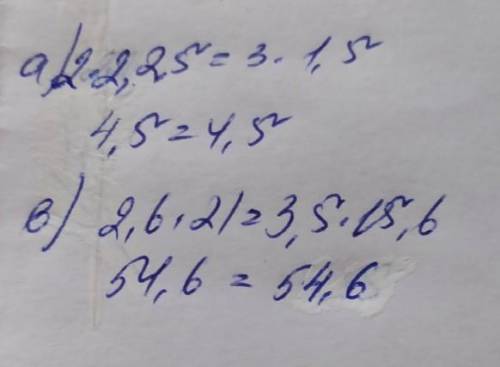 а) 2 · 2,25 = 3 · 1,5
4,5 = 4,5
в) 2,6 · 21 = 3,5 · 15,6
54,6 = 54,6